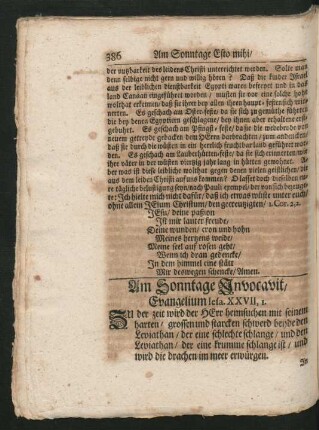 386 Am Sonntage Esto mihi/
der nutzbarkeit des leidens Christi unterrichtet werden. Solte man
denn selbige nicht gern und willig hören? Daß die kinder Israel
aus der leiblichen dienstbarkeit Egypti waren befreyet und in das
land Canaan eingeführet worden / musten sie vor eine solche hohe
wolthat erkennen/ daß sie ihrer bey allen ihren haupt-festen sich
erinnerten. Es geschach am Oster-feste/ da sie sich zu gemüthe führeten
die bey denen Egyptern geschlagene/ bey ihnen aber erhaltene erst-
gebuhrt. Es geschach am Pfingst-feste/ da sie die webebrodte von
neuem getreyde gebacken dem HErrn darbrachten/ zum andencken/
daß sie durch die wüsten in ein herrlich fruchtbar land geführet wor-
den. Es geschach am Lauberhütten-feste/ da sie sich erinnerten/ wie
ihre väter in der wüsten viertzig jahr lang in hütten gewohnet. Aber
was ist diese leibliche wolthat gegen denen vielen geistlichen/ die
aus dem leiden Christi auf uns kommen? O lasset doch dieselben unse-
re tägliche belustigung seyn/ nach Pauli exempel/ der von sich bezeuge-
te: Ich hielte mich nicht dafür/ daß ich etwas wüste unter euch/
ohne allein JEsum Christum/ den gecreutzigten/ 1. Cor. 2, 2.
JEsu/ deine passion
Ist mir lauter freude/
Deine wunden/ cron und hohn
Meines hertzens weide/
Meine seel auf rosen geht/
Wenn ich dran gedencke/
In dem himmel eine stätt
Mir deswegen schencke/ Amen.
Am Sonntage Jnvocavit/
Evangelium Iesa. XXVII, 1.
ZU der zeit wird der HErr heimsuchen mit seinem
harten/ grossen und starcken schwerd beyde den
Leviathan/ der eine schlechte schlange/ und den
Leviathan/ der eine krumme schlange ist/ und
wird die drachen im meer erwürgen.